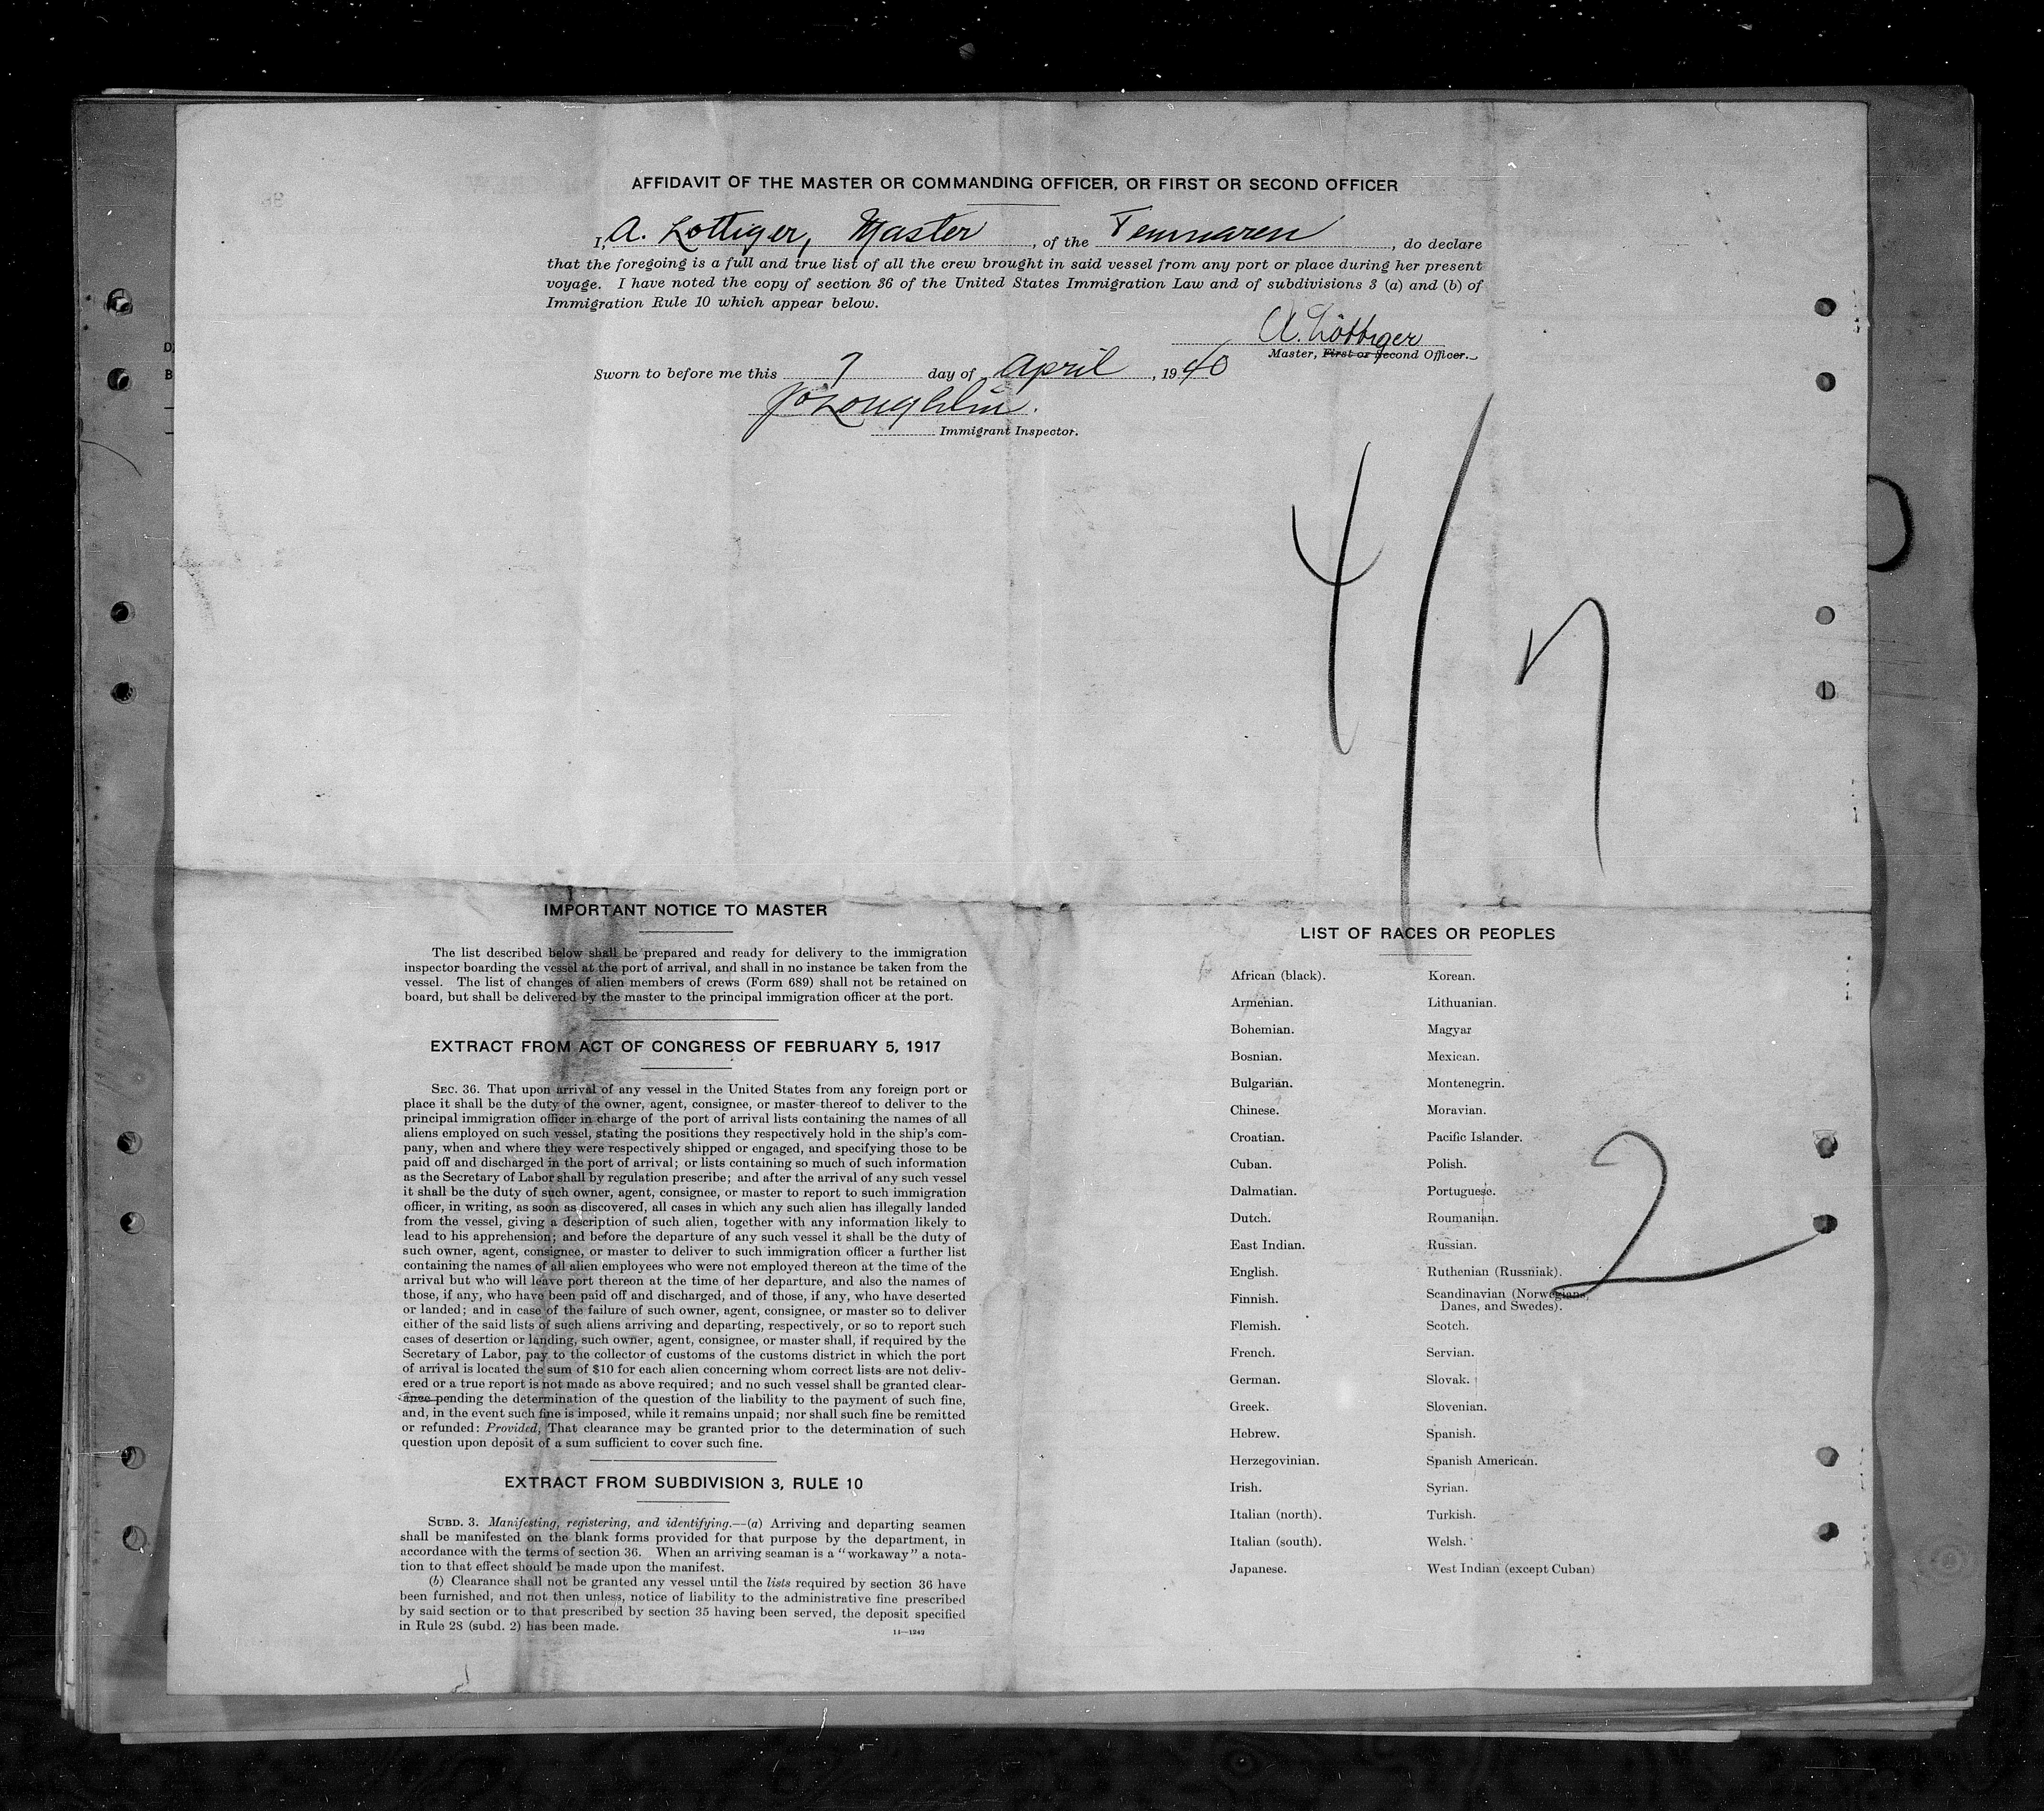 AFFIDAVIT OF THE MASTER OR COMMANDING OFFICER, OR FIRST OR SECOND OFFICER
I, A. Lottiger, Master, of the Temnaren, do declare
that the foregoing is a full and true list of all the crew brought in said vessel from any port or place during her present
voyage. I have noted the copy of section 36 of the United States Immigration Law and of subdivisions 3 (a) and (b) of
Immigration Rule 10 which appear below.
A. Löttiger
Master, First or Second Officer.
Sworn to before me this 7 day of April, 1940
Immigrant Inspector.
4/7
IMPORTANT NOTICE TO MASTER
The list described below shall be prepared and ready for delivery to the immigration
inspector boarding the vessel at the port of arrival, and shall in no instance be taken from the
vessel. The list of changes of alien members of crews (Form 689) shall not be retained on
board, but shall be delivered by the master to the principal immigration officer at the port.
EXTRACT FROM ACT OF CONGRESS OF FEBRUARY 5, 1917
SEC. 36. That upon arrival of any vessel in the United States from any foreign port or
place it shall be the duty of the owner, agent, consignee, or master thereof to deliver to the
principal immigration officer in charge of the port of arrival lists containing the names of all
aliens employed on such vessel, stating the positions they respectively hold in the ship's com-
pany, when and where they were respectively shipped or engaged, and specifying those to be
paid off and discharged in the port of arrival; or lists containing so much of such information
as the Secretary of Labor shall by regulation prescribe; and after the arrival of any such vessel
it shall be the duty of such owner, agent, consignee, or master to report to such immigration
officer, in writing, as soon as discovered, all cases in which any such alien has illegally landed
from the vessel, giving a description of such alien, together with any information likely to
lead to his apprehension; and before the departure of any such vessel it shall be the duty of
such owner, agent, consignee, or master to deliver to such immigration officer a further list
containing the names of all alien employees who were not employed thereon at the time of the
arrival but who will leave port thereon at the time of her departure, and also the names of
those, if any, who have been paid off and discharged, and of those, if any, who have deserted
or landed; and in case of the failure of such owner, agent, consignee, or master so to deliver
either of the said lists of such aliens arriving and departing, respectively, or so to report such
cases of desertion or landing, such owner, agent, consignee, or master shall, if required by the
Secretary of Labor, pay to the collector of customs of the customs district in which the port
of arrival is located the sum of $10 for each alien concerning whom correct lists are not deliv-
ered or a true report is not made as above required; and no such vessel shall be granted clear-
ance pending the determination of the question of the liability to the payment of such fine,
and, in the event such fine is imposed, while it remains unpaid; nor shall such fine be remitted
or refunded: Provided, That clearance may be granted prior to the determination of such
question upon deposit of a sum sufficient to cover such fine.
EXTRACT FROM SUBDIVISION 3, RULE 10
SUBD. 3. Manifesting, registering, and identifying.—(a) Arriving and departing seamen
shall be manifested on the blank forms provided for that purpose by the department, in
accordance with the terms of section 36. When an arriving seaman is a "workaway" a nota-
tion to that effect should be made upon the manifest.
(b) Clearance shall not be granted any vessel until the lists required by section 36 have
been furnished, and not then unless, notice of liability to the administrative fine prescribed
by said section or to that prescribed by section 35 having been served, the deposit specified
in Rule 28 (subd. 2) has been made.
14—1249
LIST OF RACES OR PEOPLES
African (black).
Armenian.
Bohemian.
Bosnian.
Bulgarian.
Chinese.
Croatian.
Cuban.
Dalmatian.
Dutch.
East Indian.
English.
Finnish.
Flemish.
French.
German.
Greek.
Hebrew.
Herzegovinian.
Irish.
Italian (north).
Italian (south).
Japanese.
Korean.
Lithuanian.
Magyar
Mexican.
Montenegrin.
Moravian.
Pacific Islander.
Polish.
Portuguese.
Roumanian.
Russian.
Ruthenian (Russniak).
Scandinavian (Norwegians,
Danes, and Swedes).
Scotch.
Servian.
Slovak.
Slovenian.
Spanish.
Spanish American.
Syrian.
Turkish.
Welsh.
West Indian (except Cuban)
2